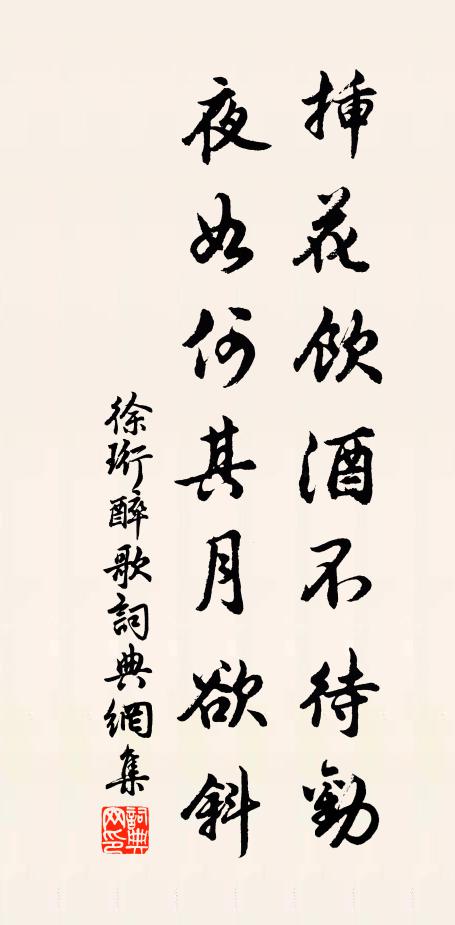 揷花飲酒不待勸
夜如何其月欲斜
徐珩醉歌詞典網集
詞典網印